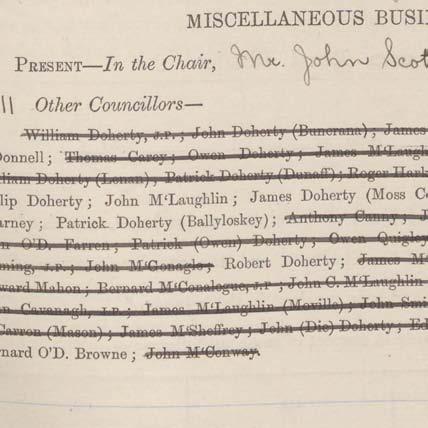 MISCELLANEOUS BUSI
PRESENT—In the Chair, Mr. John Scot
11 Other Councillors—
William Doherty, J.P.; John Doherty (Buncrana); James
Donnell; Thomas Carey; Owen Doherty; James M'Laugh
lliam Doherty (Lenan), Patrick Doherty (Dunaff); Roger Hark
lip Doherty; John M'Laughlin; James Doherty (Moss C
arney; Patrick Doherty (Ballyloskey); Anthony Canny; J
n O'D. Farren; Patrick (Owen) Doherty; Owen Quigley
ming, J.P.; John M'Gonagle; Robert Doherty; James M'
ward Mahon; Bernard M'Conalogue, J.P.; John C. M'Laughlin
n Cavanagh, J.P.; James M'Laughlin (Moville); John Smi
Carron (Mason); James M'Sheffrey; John (Die) Doherty; Ed
rnard O'D. Browne; John M'Conway.